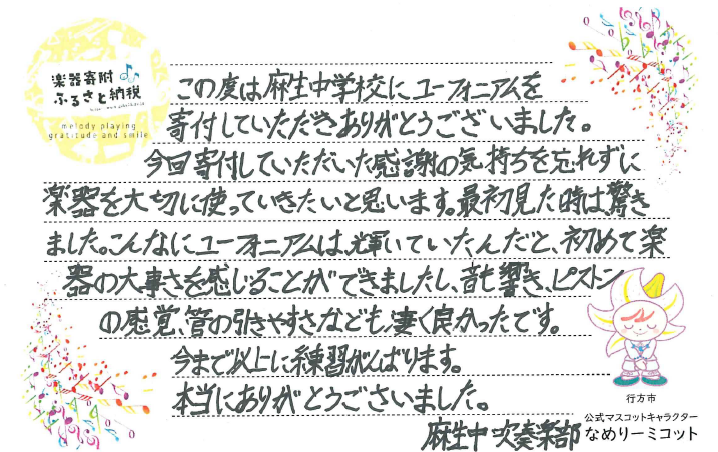 楽器寄附
ふるさと納税
melody playing
gratitude and smile
この度は麻生中学校にユーフォニアムを
寄付していただきありがとうございました。
今回寄付していただいた感謝の気持ちを忘れずに
楽器を大切に使っていきたいと思います。最初見た時は驚き
ました。こんなにユーフォニアムは、輝いていたんだと、初めて楽
器の大事さを感じることができましたし、音も響き、ピストン
の感覚、管の引きやすさなども凄く良かったです。
今まで以上に練習がんばります。
本当にありがとうございました。
麻生中 吹奏楽部
行方市
公式マスコットキャラクター
なめりーミコット